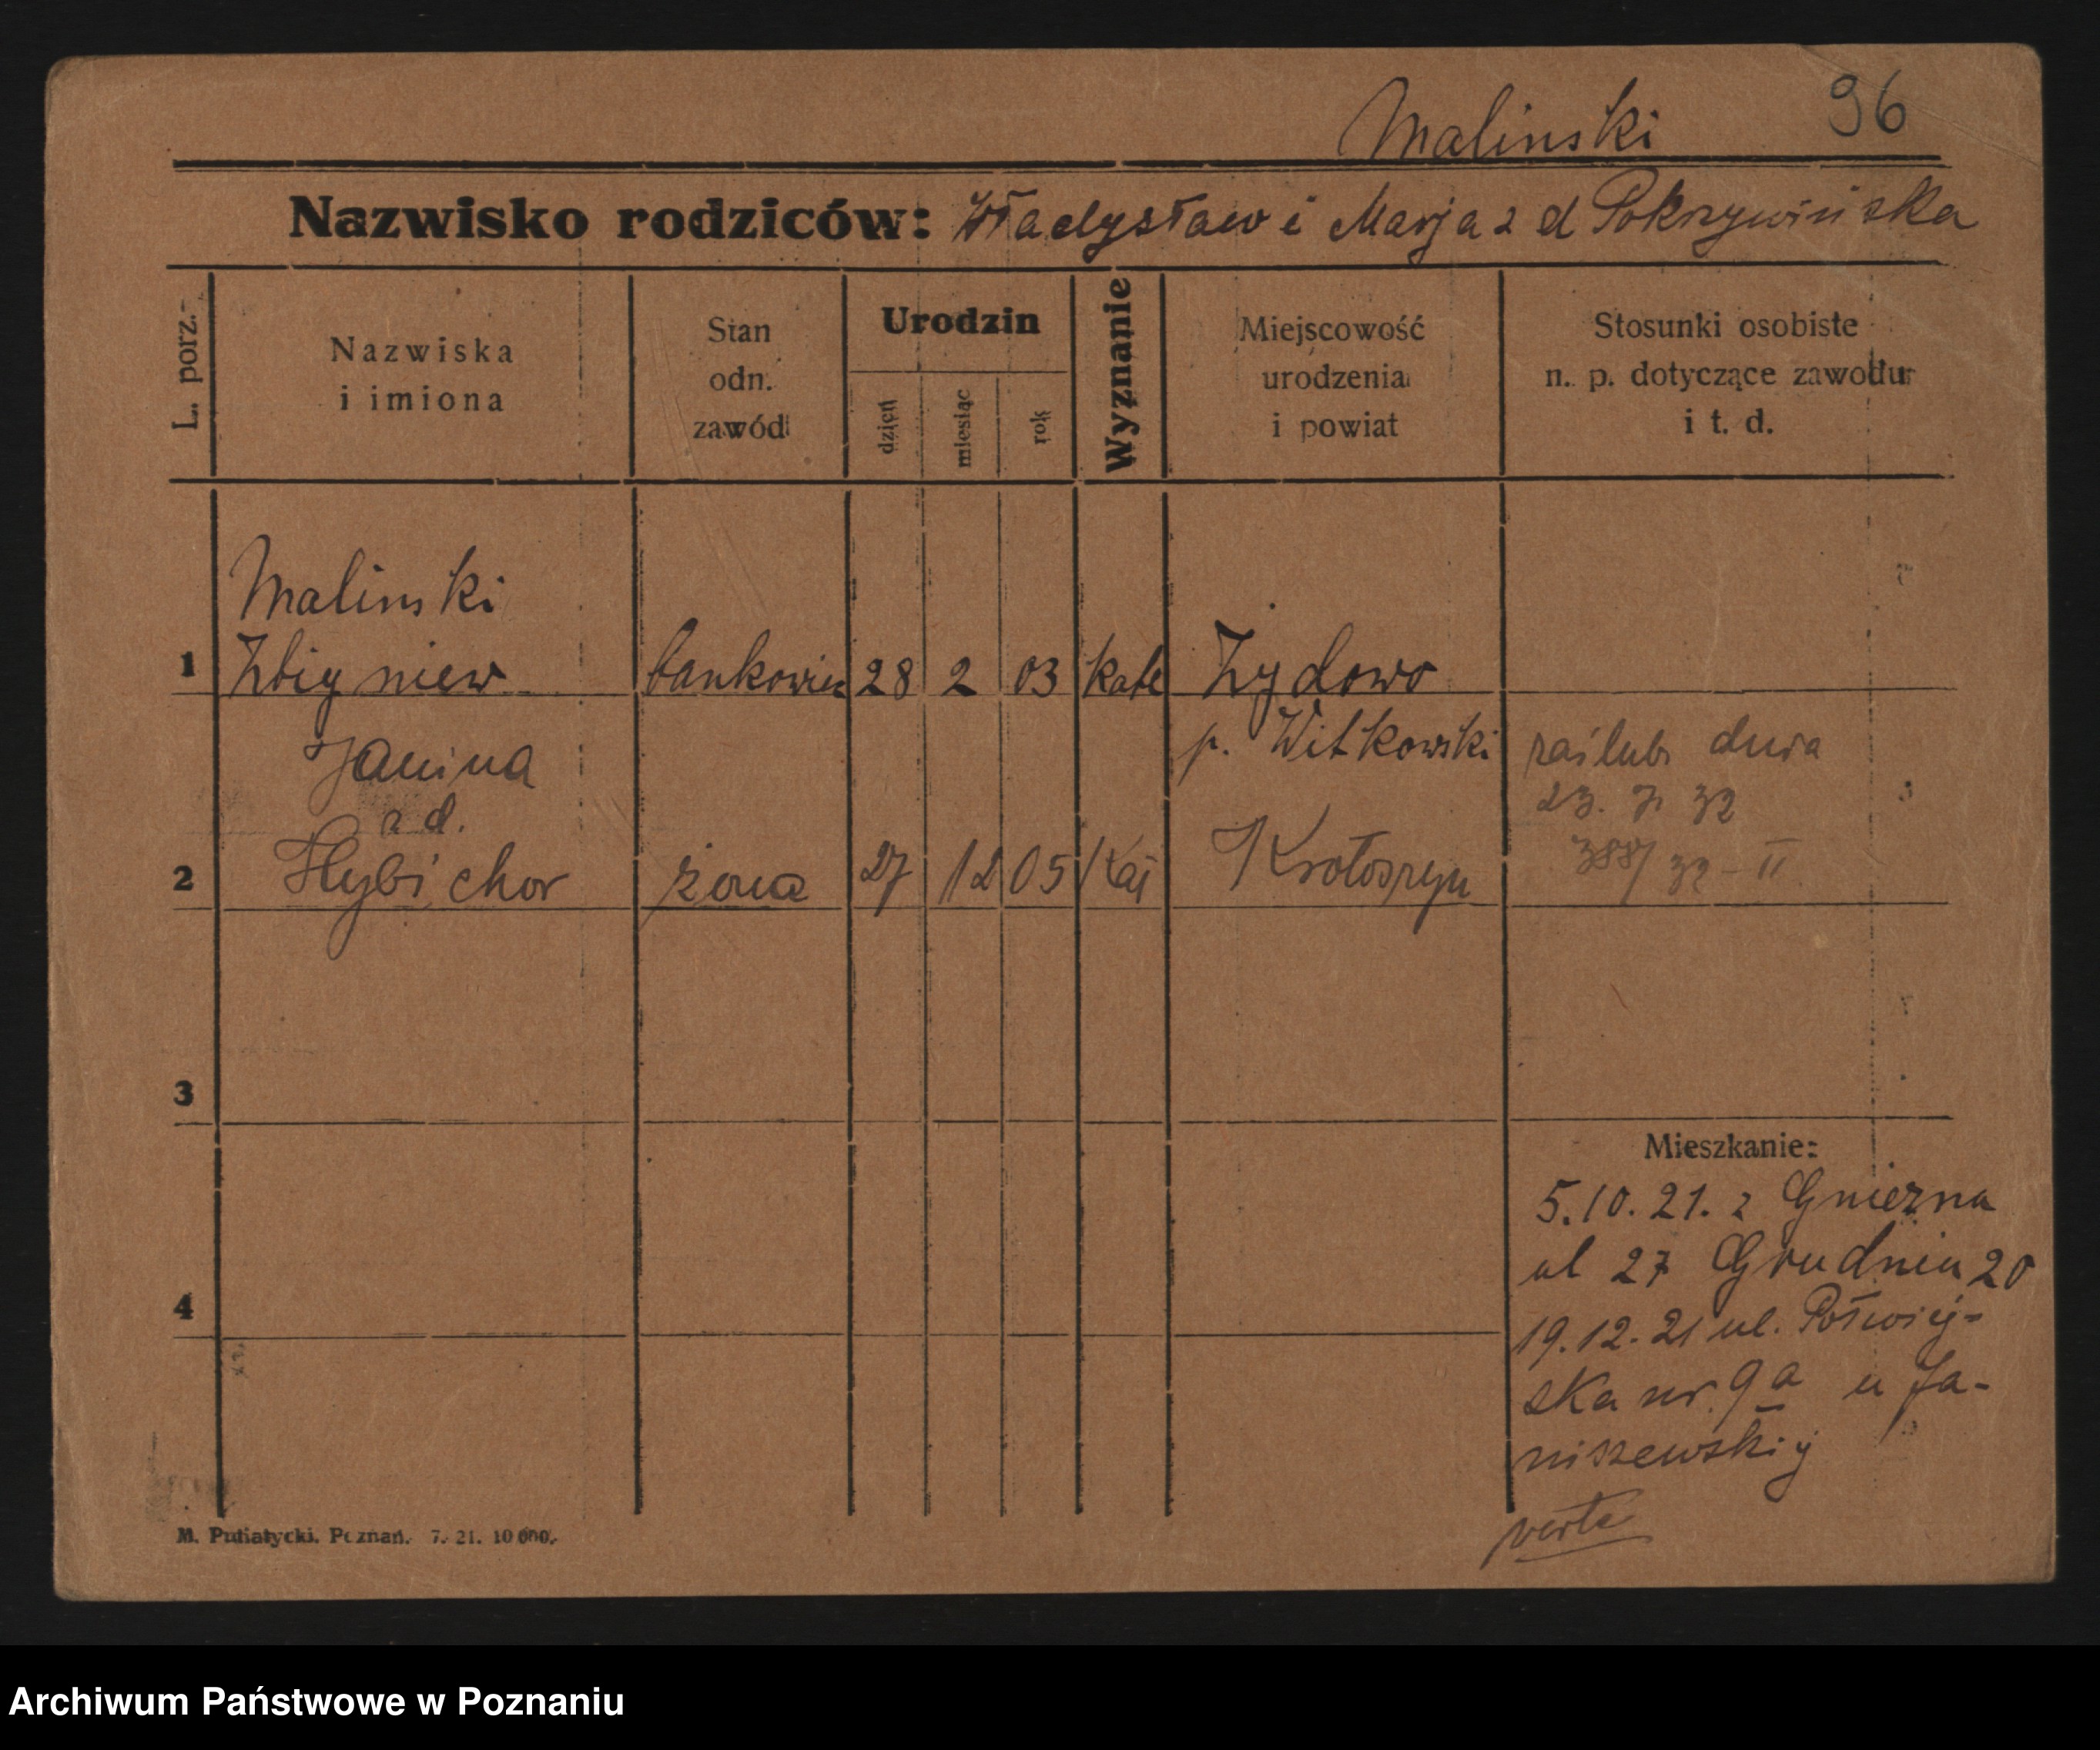 Malinski 96
Nazwisko rodziców: Władysław i Marja z d Pokrzywińska
L. porz.
Nazwiska
i imiona
Stan
odn.
zawód
Urodzin
dzień
miesiąc
rok
Wyznanie
Miejscowość
urodzenia
i powiat
Stosunki osobiste
n. p. dotyczące zawodu
i t. d.
Malinski
1 Zbigniew bankowiec 28 2 03 kate Żydowo
p. Witkowski
Janina
z d.
2 Hybichor żona 27 12 05 Kat Krotoszyn
zaślub. dnia
23. 7. 32
388/32 - II
3
4
Mieszkanie:
5.10.21. z Gniezna
ul 27 Grudnia 20
19.12.21 ul. Półwiej-
ska nr. 9a u Ja-
niszewskiej
verte
M. Putiatycki. Poznań. 7. 21. 10 000.
Archiwum Państwowe w Poznaniu